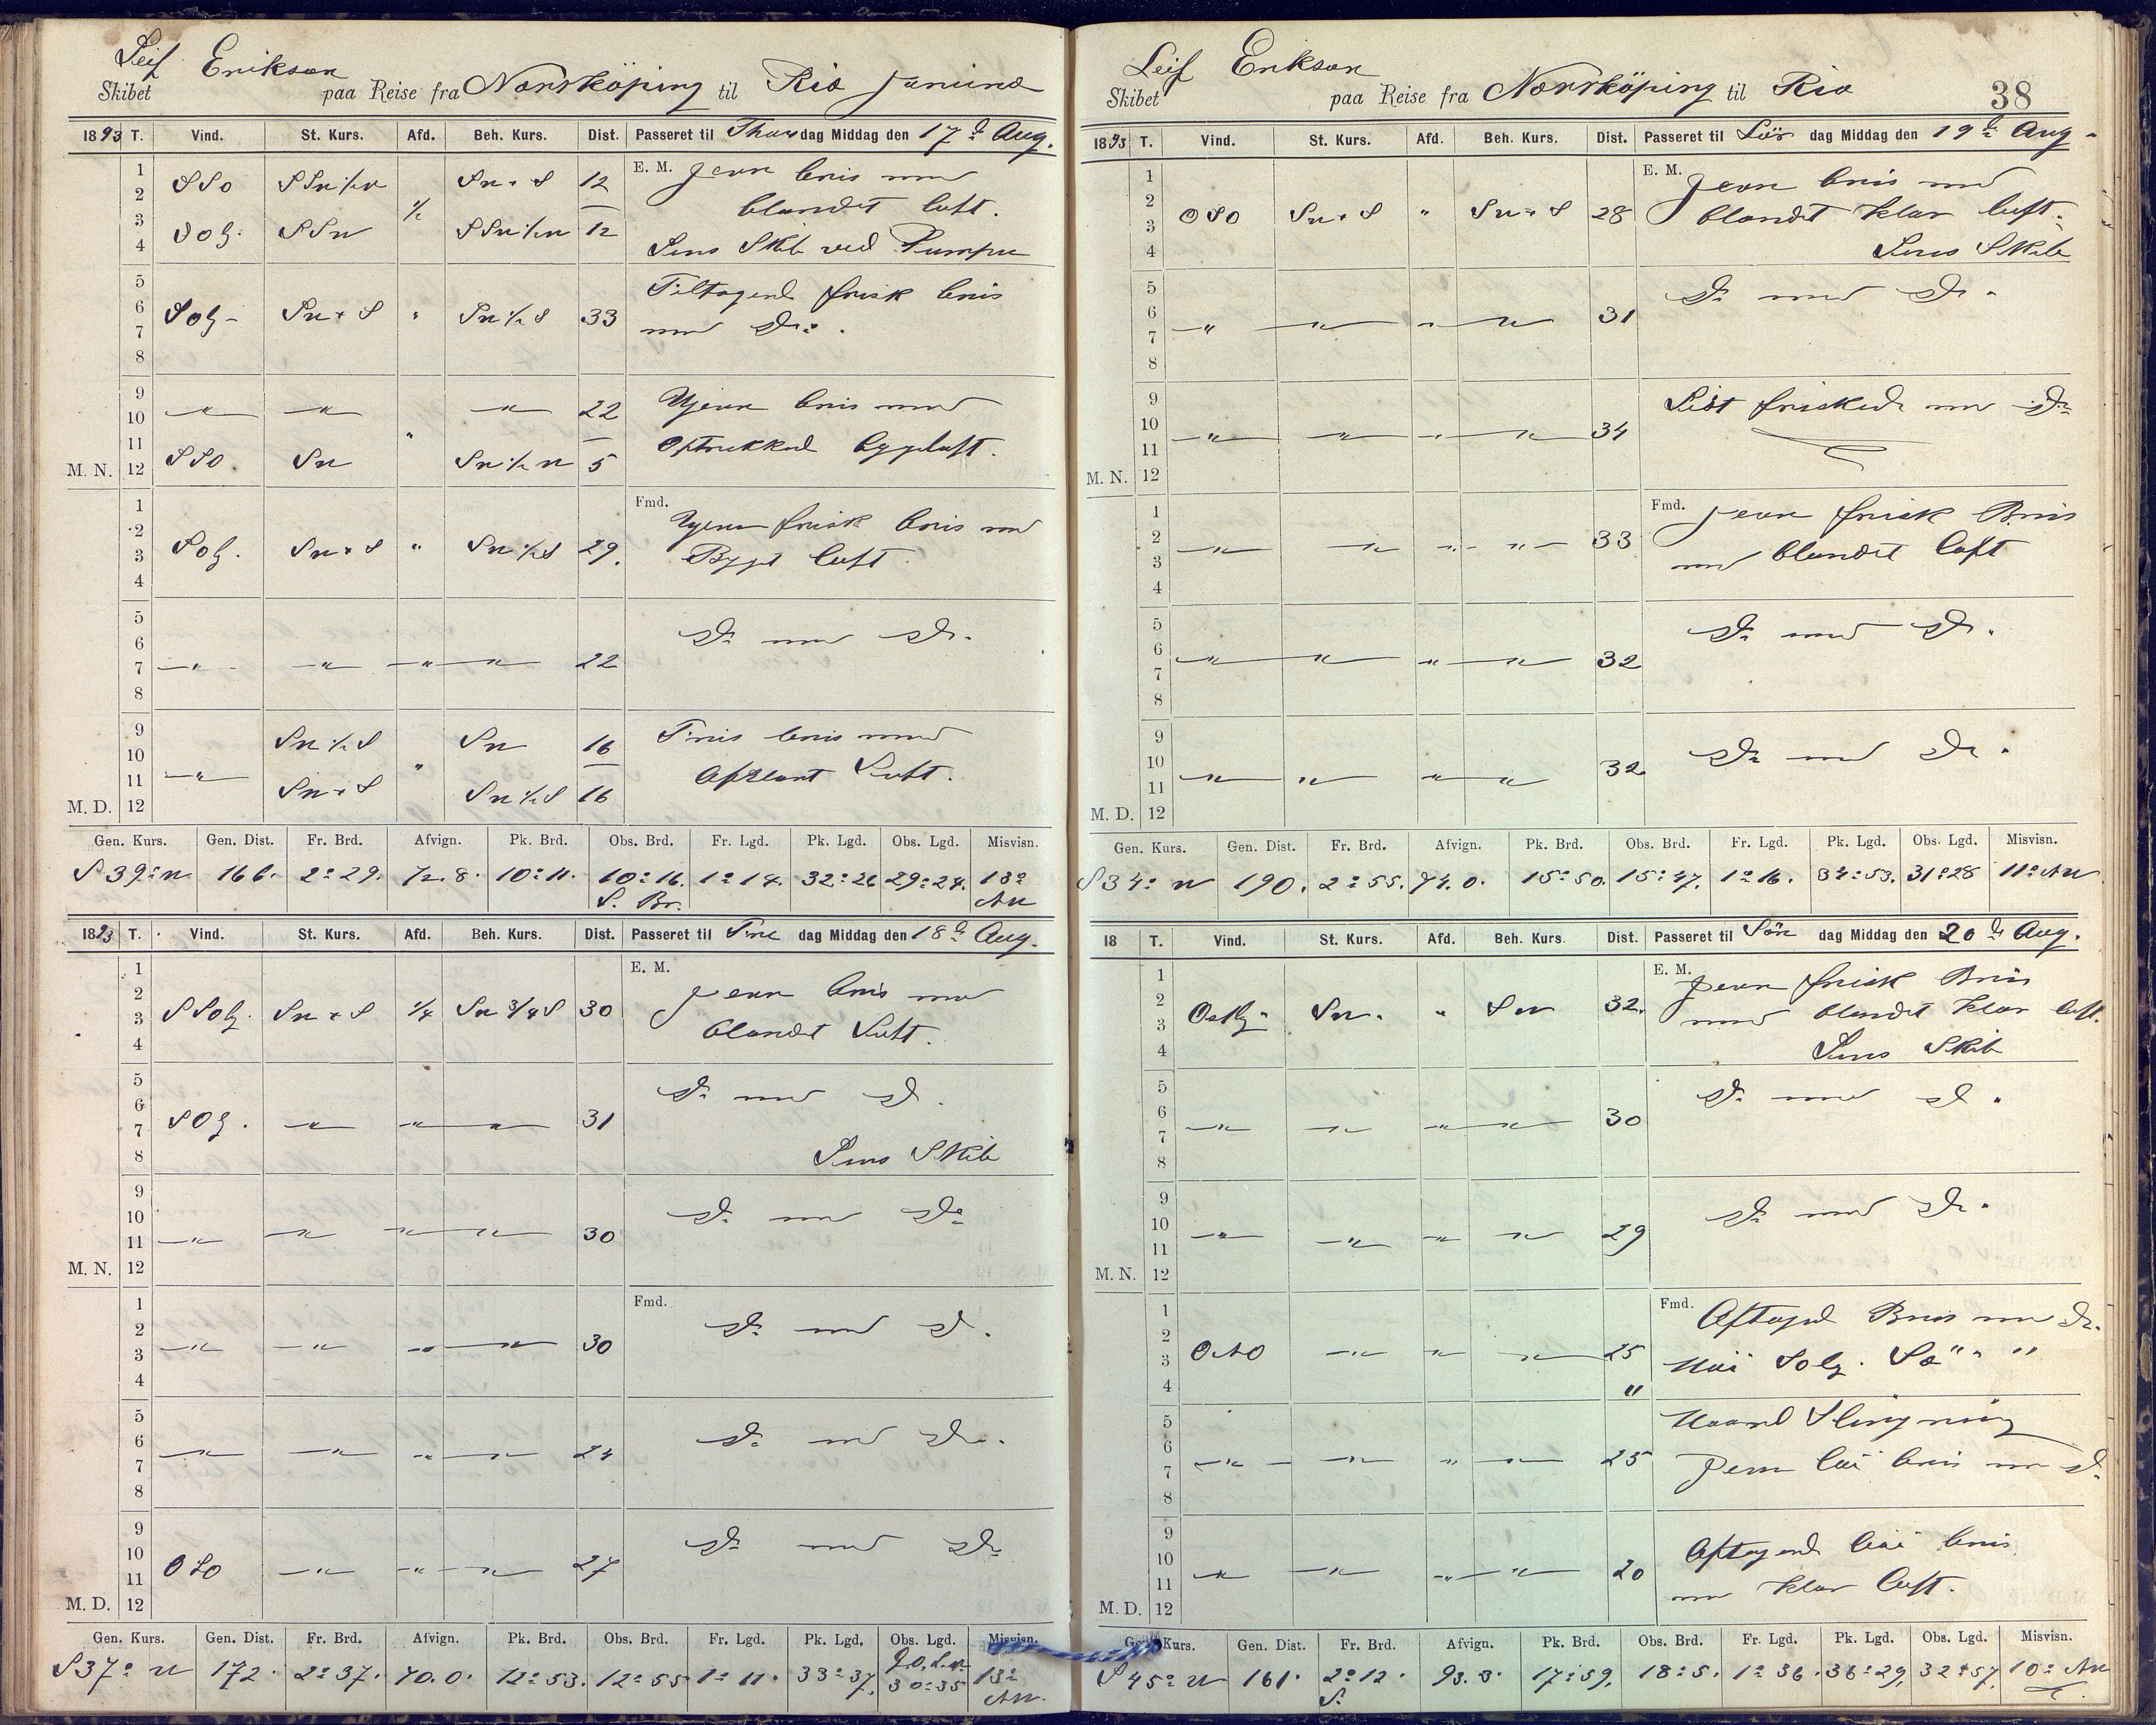 Leif Erikson
Skibet paa Reise fra Norrköping til Rio Janeiro
1893 T. Vind. St. Kurs. Afd. Beh. Kurs. Dist. Passeret til Thorsdag Middag den 17de Aug.
E. M. Jevn bris med
1 2 SSO 12
blandet luft.
3 4 SOlg. SSW 12
Lens Skib ved Pumpen
5 6 7 8 SOlg 33 Tiltagend frisk bris
med Do.
9 10 — " — — " — — " — 22 Ujevn bris med
Optrukked bygeluft.
M. N. 11 12 SSO SW " 5
Fmd.
1 2 3 4 SOlg. " 29. Ujevn frisk bris med
Byget luft
5 6 7 8 — " — — " — — " — — " — 22 Do med Do.
9 10 SW 16 Fris bris med
M. D. 11 12 — " — " 16 luft.
Gen. Kurs. Gen. Dist. Fr. Brd. Afvign. Pk. Brd. Obs. Brd. Fr. Lgd. Pk. Lgd. Obs. Lgd. Misvisn.
S 39° W 166. 2° 29. 72. 8. 10° 11. 10° 16. 1° 14. 32° 26 29° 24. 13°
S. Br. NW
1893 T. Vind. St. Kurs. Afd. Beh. Kurs. Dist. Passeret til Fre dag Middag den 18de Aug.
E. M.
1 2 3 4 SSOlg. 1/4 SW 3/4 S 30 Jevn bris med
blandet Luft.
5 6 7 8 SOlg. — " — — " — — " — 31 Do med Do.
Lens Skib
M. N. 9 10 11 12 — " — — " — — " — — " — 30 Do med Do
Fmd.
1 2 3 4 — " — — " — — " — — " — 30 Do med Do.
5 6 7 8 — " — — " — — " — — " — 24 Do med Do.
M. D. 9 10 11 12 OSO — " — — " — — " — 27 Do med Do
Gen. Kurs. Gen. Dist. Fr. Brd. Afvign. Pk. Brd. Obs. Brd. Fr. Lgd. Pk. Lgd. Obs. Lgd. Misvisn.
S 37° W 172. 2° 37. 70. 0. 12° 53. 12° 55 1° 11. 33° 37. 30° 35 13°
NW.
Leif Erikson
Skibet paa Reise fra Norrköping til Rio 38
1893 T. Vind. St. Kurs. Afd. Beh. Kurs. Dist. Passeret til Lör dag Middag den 19de Aug.
E. M. Jevn bris med
1 2 3 4 OSO " 28 blandet klar luft.
Lens Skib
5 6 7 8 — " — — " — — " — — " — 31 Do med Do.
M. N. 9 10 11 12 — " — — " — — " — — " — 34 Lidt friskede med Do
Fmd.
1 2 3 4 — " — — " — — " — — " — 33 Jevn frisk Bris
med blandet luft
5 6 7 8 — " — — " — — " — — " — 32 Do med Do.
M. D. 9 10 11 12 — " — — " — — " — — " — 32 Do med Do.
Gen. Kurs. Gen. Dist. Fr. Brd. Afvign. Pk. Brd. Obs. Brd. Fr. Lgd. Pk. Lgd. Obs. Lgd. Misvisn.
S 34° W 190. 2° 55. 74. 0. 15° 50. 15° 47. 1° 16. 34° 53. 31° 28 11° NW
18 T. Vind. St. Kurs. Afd. Beh. Kurs. Dist. Passeret til Sön dag Middag den 20de Aug.
E. M. Jevn frisk Bris
1 2 3 4 Ostlg. SW. " SW 32. med blandet klar luft.
Lens Skib
5 6 7 8 — " — — " — — " — — " — 30 Do med Do.
M. N. 9 10 11 12 — " — — " — — " — — " — 29 Do med Do.
Fmd.
1 2 3 4 ONO — " — — " — — " — 25 Aftagend Bris med Do.
Höi Solg. Sö
Haard Slingning
5 6 7 8 — " — — " — — " — — " — 25 Jevn löi bris med Do
M. D. 9 10 11 12 — " — — " — — " — — " — 20 Aftagend löi bris
med klar luft.
Gen. Kurs. Gen. Dist. Fr. Brd. Afvign. Pk. Brd. Obs. Brd. Fr. Lgd. Pk. Lgd. Obs. Lgd. Misvisn.
S 45° W 161. 2° 12. 93. 3. 17° 59. 18° 5. 1° 36. 36° 29. 32° 57. 10° NW
S.